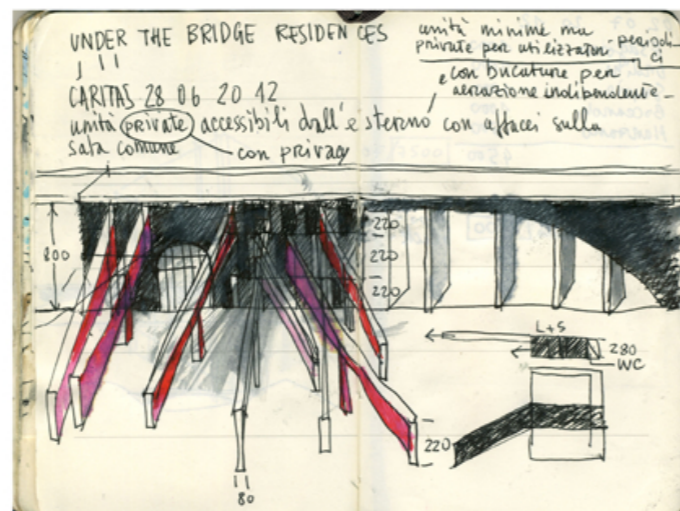 UNDER THE BRIDGE RESIDENCES
CARITAS 28 06 20 12
unità private accessibili dall'esterno con affacci sulla
sala comune
con privacy
unità minime ma
private per utilizzatori periodi
ci
e con bucature per
aerazione indipendente
800
220
220
220
L+S
280
WC
220
80